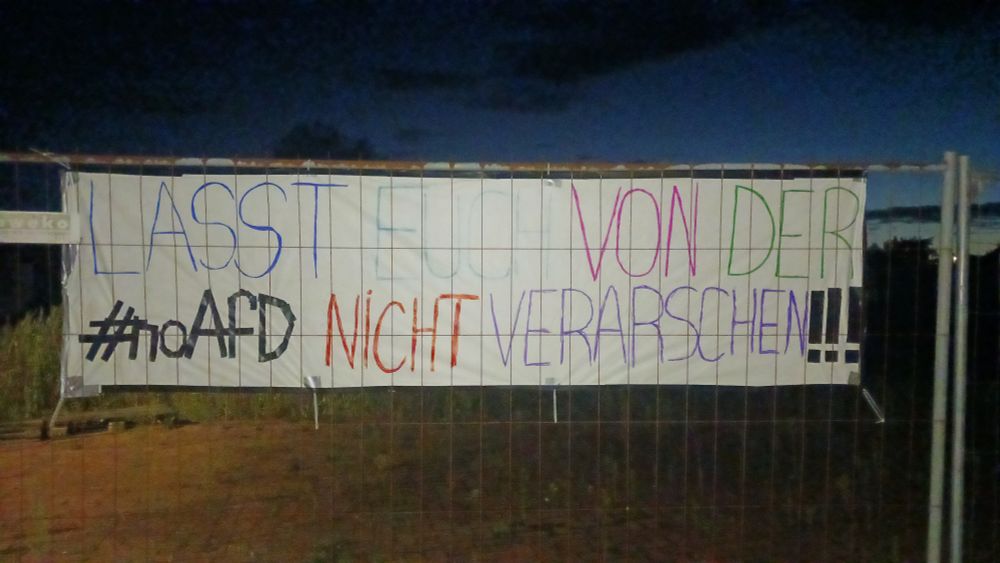 LASST EUCH VON DER
#noAfD NICHT VERARSCHEN!!!